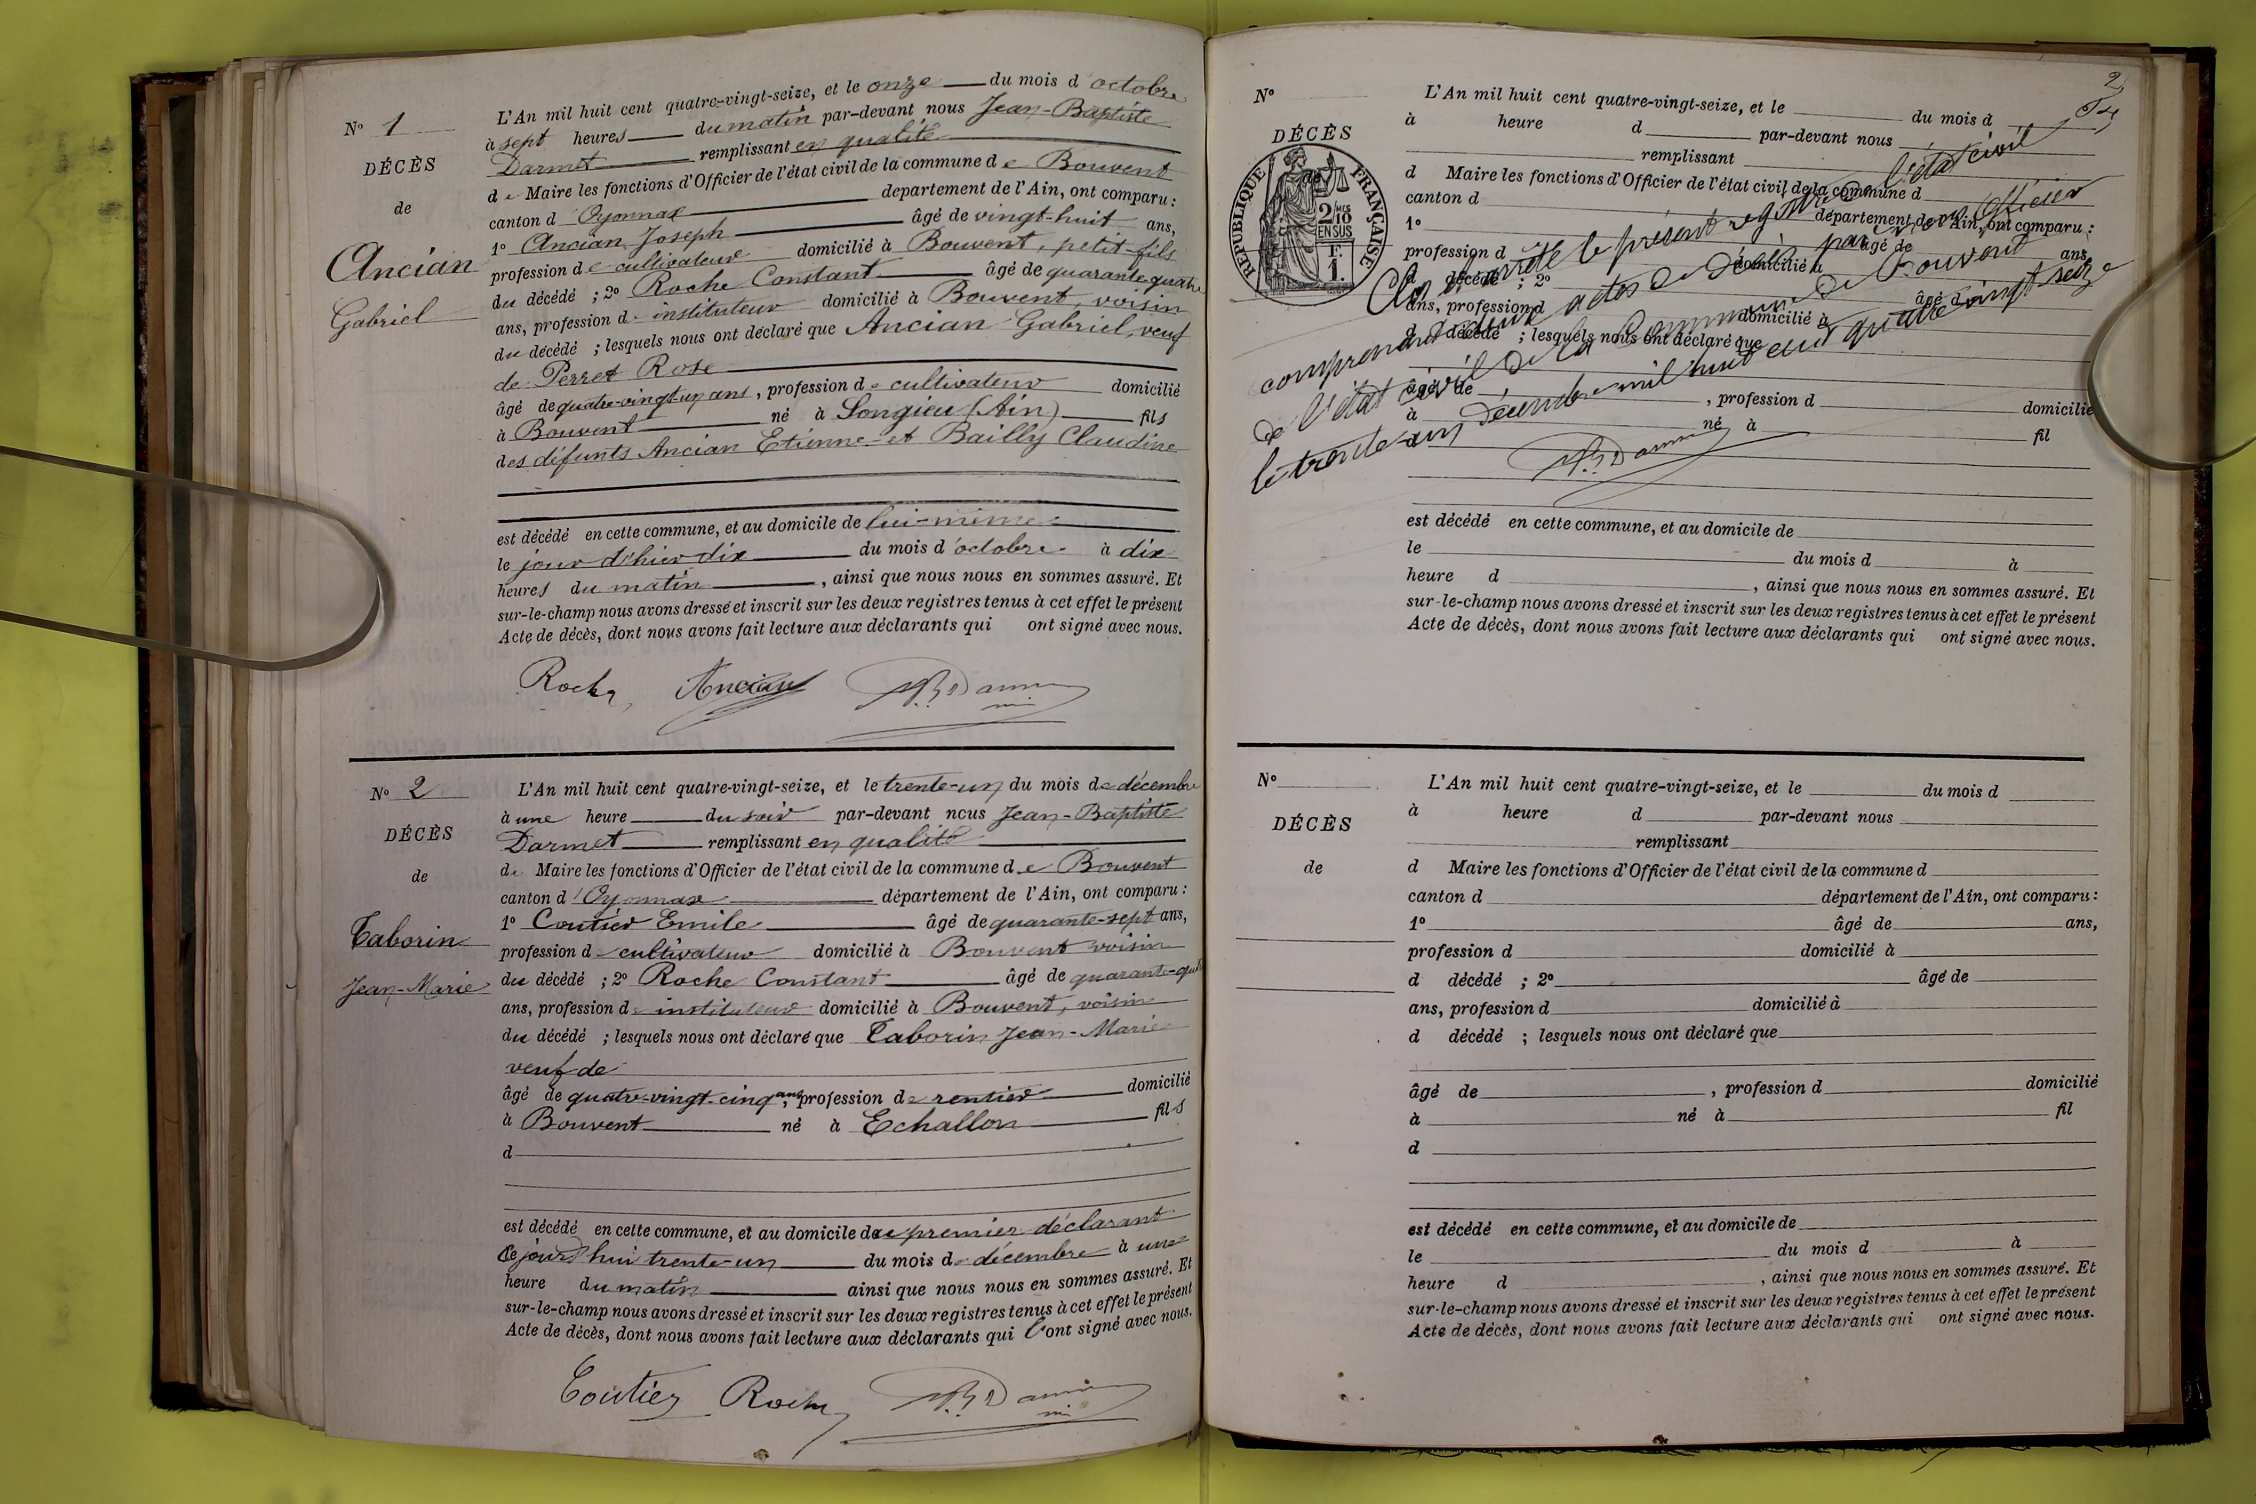 N° 1
DÉCÈS
de
Ancian
Gabriel
L'An mil huit cent quatre-vingt-seize, et le onze du mois d'octobre
à sept heures du matin par-devant nous Jean-Baptiste
Darmet remplissant en qualité
de Maire les fonctions d'Officier de l'état civil de la commune de Bouvent
canton d'Oyonnax département de l'Ain, ont comparu :
1° Ancian Joseph âgé de vingt-huit ans,
profession de cultivateur domicilié à Bouvent, petit-fils
du décédé ; 2° Roche Constant âgé de quarante-quatre
ans, profession d'instituteur domicilié à Bouvent, voisin
du décédé ; lesquels nous ont déclaré que Ancian Gabriel, veuf
de Perret Rose
âgé de quatre-vingt-un ans, profession de cultivateur domicilié
à Bouvent né à Songieu (Ain) fils
des défunts Ancian Etienne et Bailly Claudine
est décédé en cette commune, et au domicile de lui-même
le jour d'hier dix du mois d'octobre à dix
heures du matin, ainsi que nous nous en sommes assuré. Et
sur-le-champ nous avons dressé et inscrit sur les deux registres tenus à cet effet le présent
Acte de décès, dont nous avons fait lecture aux déclarants qui ont signé avec nous.
Roche Ancian J.B. Darmet
N° 2
DÉCÈS
de
Taborin
Jean-Marie
L'An mil huit cent quatre-vingt-seize, et le trente-un du mois de décembre
à une heure du soir par-devant nous Jean-Baptiste
Darmet remplissant en qualité
de Maire les fonctions d'Officier de l'état civil de la commune de Bouvent
canton d'Oyonnax département de l'Ain, ont comparu :
1° Coutier Emile âgé de quarante-sept ans,
profession de cultivateur domicilié à Bouvent voisin
du décédé ; 2° Roche Constant âgé de quarante-qua
ans, profession d'instituteur domicilié à Bouvent, voisin
du décédé ; lesquels nous ont déclaré que Taborin Jean-Marie
veuf de
âgé de quatre-vingt-cinq ans, profession de rentier domicilié
à Bouvent né à Echallon fils
d
est décédé en cette commune, et au domicile du premier déclarant
Ce jourd'hui trente-un du mois de décembre à une
heure du matin ainsi que nous nous en sommes assuré. Et
sur-le-champ nous avons dressé et inscrit sur les deux registres tenus à cet effet le présent
Acte de décès, dont nous avons fait lecture aux déclarants qui ont signé avec nous.
Coutier Roche J.B. Darmet
2
N°
DÉCÈS
de
RÉPUBLIQUE FRANÇAISE
2/10 EN SUS
F. 1.
L'An mil huit cent quatre-vingt-seize, et le du mois d
à heure d par-devant nous
remplissant
d Maire les fonctions d'Officier de l'état civil de la commune d
canton d département de l'Ain, ont comparu :
1° âgé de ans,
profession d domicilié à
d décédé ; 2° âgé d
ans, profession d domicilié à
d décédé ; lesquels nous ont déclaré que
âgé de , profession d domicilié
à né à fil
d
Clos et arrêté le présent registre de l'état civil
comprenant deux actes de décès par nous Officier
de l'état civil de la Commune de Bouvent
le trente-un décembre mil huit cent quatre-vingt-seize
J.B. Darmet
est décédé en cette commune, et au domicile de
le du mois d à
heure d , ainsi que nous nous en sommes assuré. Et
sur-le-champ nous avons dressé et inscrit sur les deux registres tenus à cet effet le présent
Acte de décès, dont nous avons fait lecture aux déclarants qui ont signé avec nous.
N°
DÉCÈS
de
L'An mil huit cent quatre-vingt-seize, et le du mois d
à heure d par-devant nous
remplissant
d Maire les fonctions d'Officier de l'état civil de la commune d
canton d département de l'Ain, ont comparu :
1° âgé de ans,
profession d domicilié à
d décédé ; 2° âgé de
ans, profession d domicilié à
d décédé ; lesquels nous ont déclaré que
âgé de , profession d domicilié
à né à fil
d
est décédé en cette commune, et au domicile de
le du mois d à
heure d , ainsi que nous nous en sommes assuré. Et
sur-le-champ nous avons dressé et inscrit sur les deux registres tenus à cet effet le présent
Acte de décès, dont nous avons fait lecture aux déclarants qui ont signé avec nous.